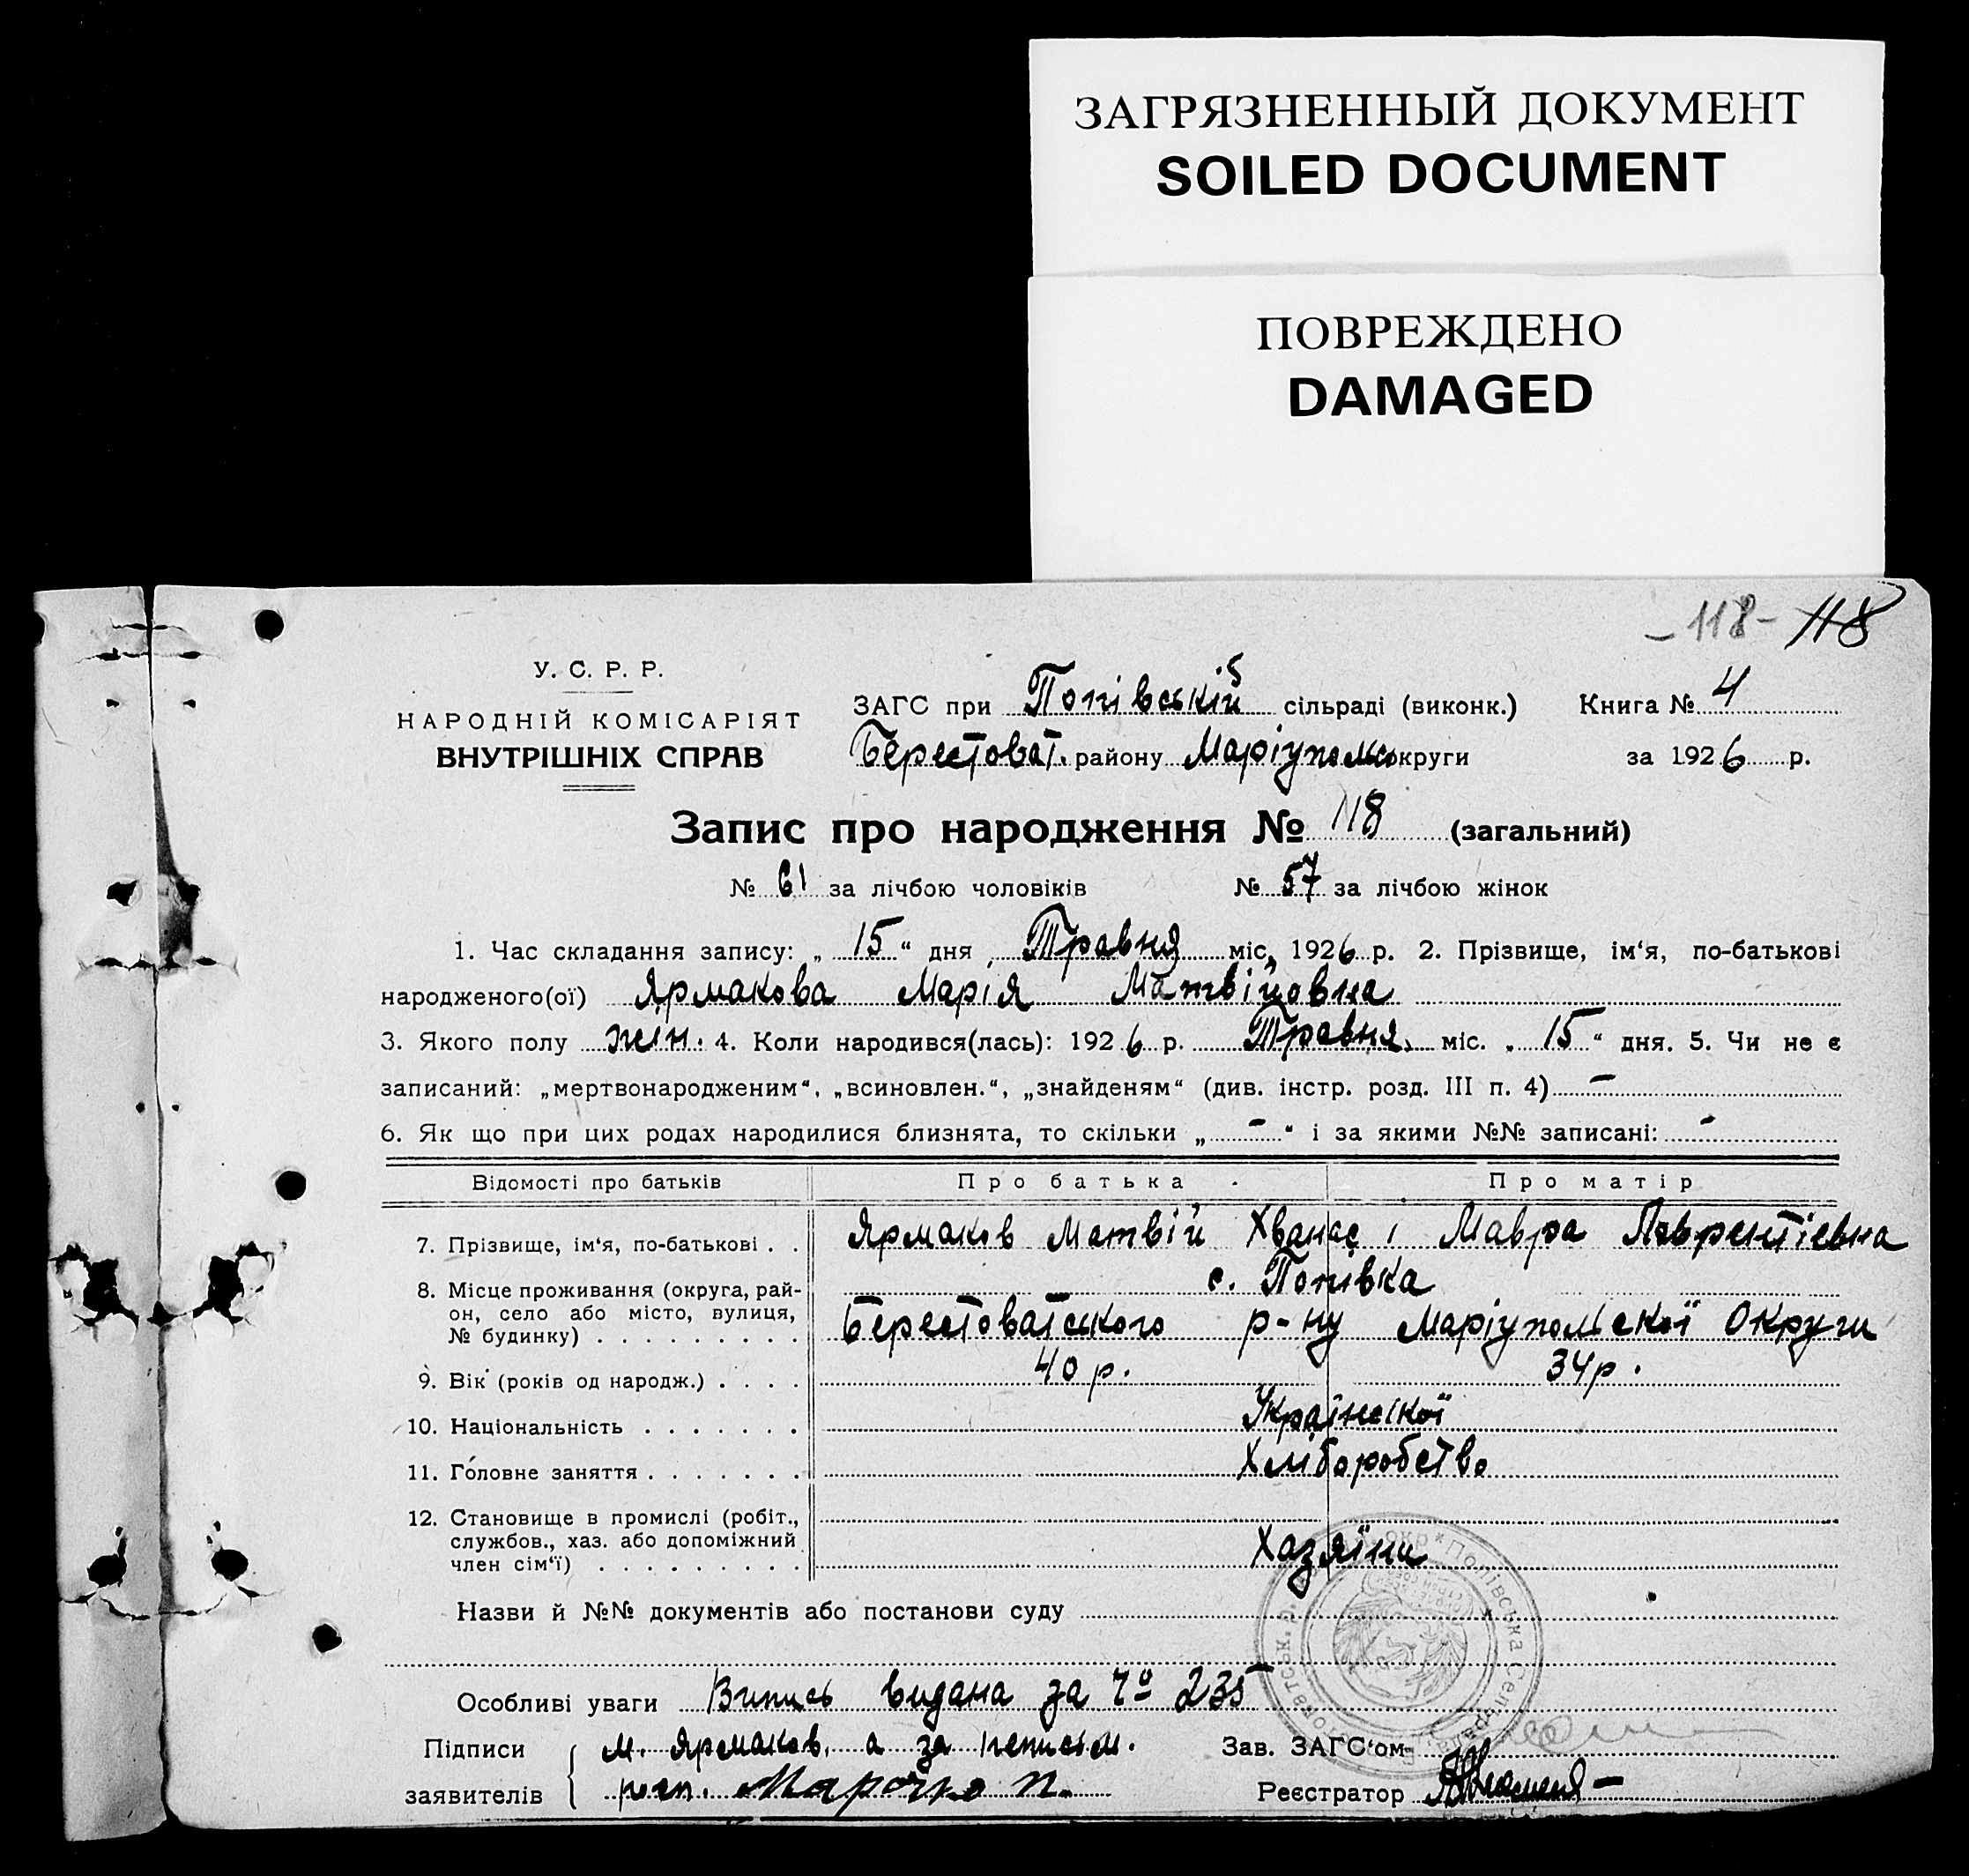 ЗАГРЯЗНЕННЫЙ ДОКУМЕНТ
SOILED DOCUMENT
ПОВРЕЖДЕНО
DAMAGED
– 118 – 118
У. С. Р. Р.
НАРОДНІЙ КОМІСАРІЯТ
ВНУТРІШНІХ СПРАВ
ЗАГС при Попівській сільраді (виконк.) Книга № 4
Берестоват. району Маріупольс округи за 1926 р.
Запис про народження № 118 (загальний)
№ 61 за лічбою чоловіків № 57 за лічбою жінок
1. Час складання запису: „ 15 “ дня Травня міс, 1926 р. 2. Прізвище, ім‘я, по-батькові
народженого(ої) Ярмакова Марія Матвійовна
3. Якого полу жін. 4. Коли народився(лась): 1926 р. Травня міс. „ 15 “ дня. 5. Чи не є
записаний: „мертвонародженим“, „всиновлен.“, „знайденям“ (див. інстр. розд. III п. 4) –
6. Як що при цих родах народилися близнята, то скільки „ – “ і за якими №№ записані: –
Відомості про батьків Про батька Про матір
7. Прізвище, ім‘я, по-батькові . . Ярмаков Матвій Хванас і Мавра Лаврентіевна
8. Місце проживання (округа, рай- с. Попівка
он, село або місто, вулиця,
№ будинку) . . . . . . . . . Берестоватського р-ну Маріупольскої Округи
9. Вік (років од народж.) . . . . 40 р. 34 р.
10. Національність . . . . . . . Українскої
11. Головне заняття . . . . . . . Хліборобство
12. Становище в промислі (робіт.,
службов., хаз. або допоміжний
член сім‘ї) . . . . . . . . . Хазяїни
Назви й №№ документів або постанови суду
Особливі уваги Випись видана за № 235
Підписи М. Ярмаков, а за неписьм. Зав. ЗАГС‘ом
заявителів росп. Марочко П. Реєстратор